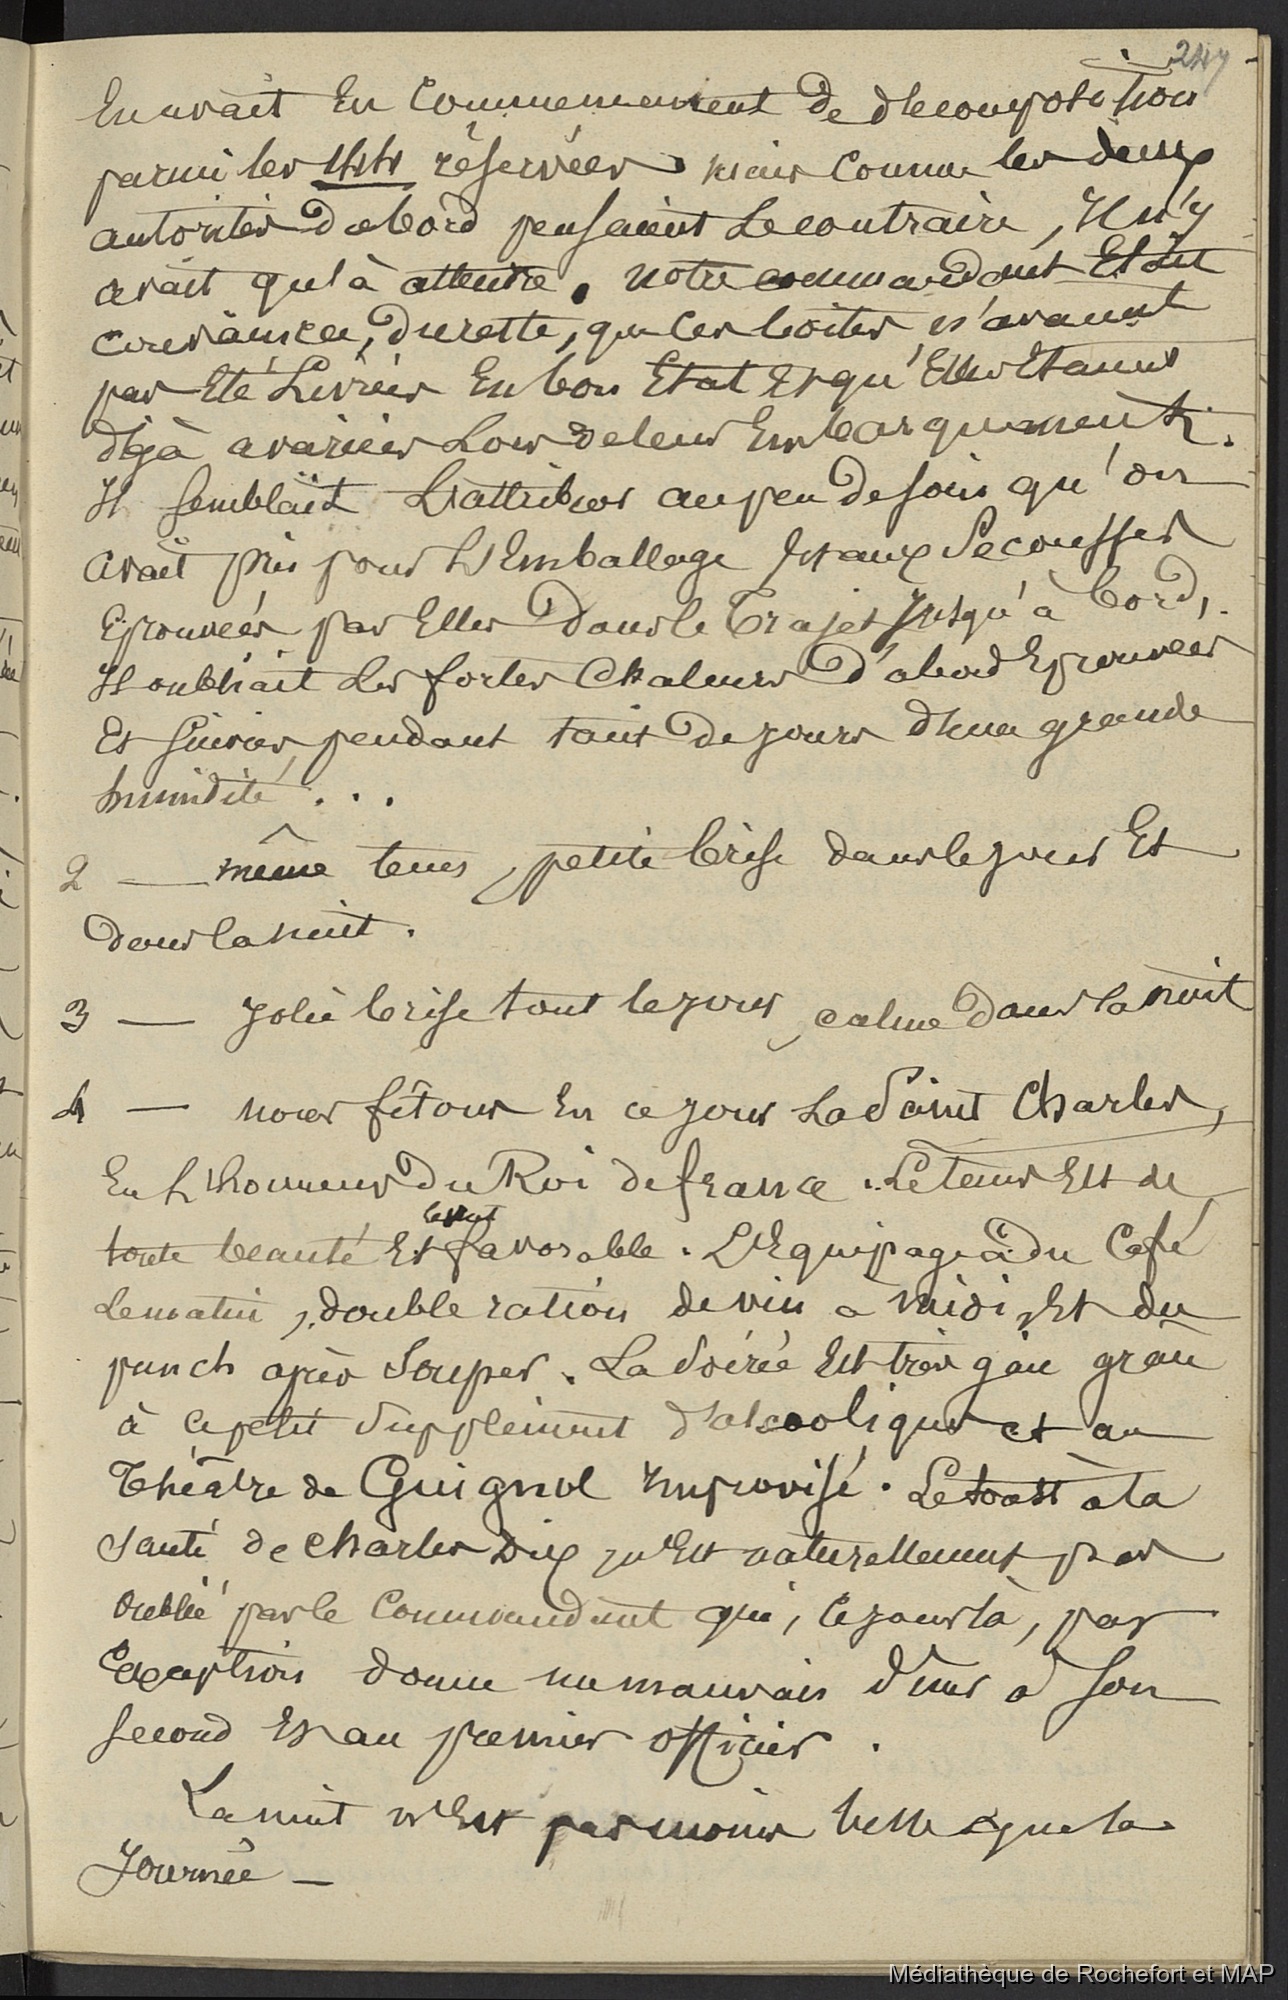 247
En avait En Commencement de décomposition
parmi les 444 réservées. mais Comme les deux
autorités d'abord pensaient Le contraire, Il n'y
avait qu'à attendre. notre commandant Etait
convaincu, du reste, que les boites n'avaient
pas Eté Livrées En bon Etat Et qu'Elles Etaient
déjà avariées Lors de leur Embarquement.
Il semblait L'attribuer au peu de soin qu'on
avait pris pour L'Emballage Et aux Secousses
Eprouvées par Elles Dans le Trajet Jusqu'à bord,.
Il oubliait Les fortes Chaleurs d'abord Eprouvées
Et Suivies, pendant tant de jours d'une grande
humidité...
2 — même tems, petite brise dans le jour Et
dans la nuit.
3 — Jolie brise tout le jour, calme Dans la nuit
4 — nous fêtons En ce jour La Saint Charles,
En L'honneur Du Roi de france. Le tems Est de
toute beauté Et le vent favorable. L'Equipage a du Café
Le matin, double ration de vin a midi, Et du
punch après Souper. La Soirée Est très gaie grâce
à ce petit Supplément d'alcoolique et au
Théâtre de Guignol Improvisé. Le toast à la
Santé de Charles Dix n'Est naturellement pas
oublié par le Commandant qui, ce jour là, par
Exception donne un mauvais dîner à Son
Second Et au premier officier.
La nuit n'Est pas moins belle que la
Journée —
Médiathèque de Rochefort et MAP